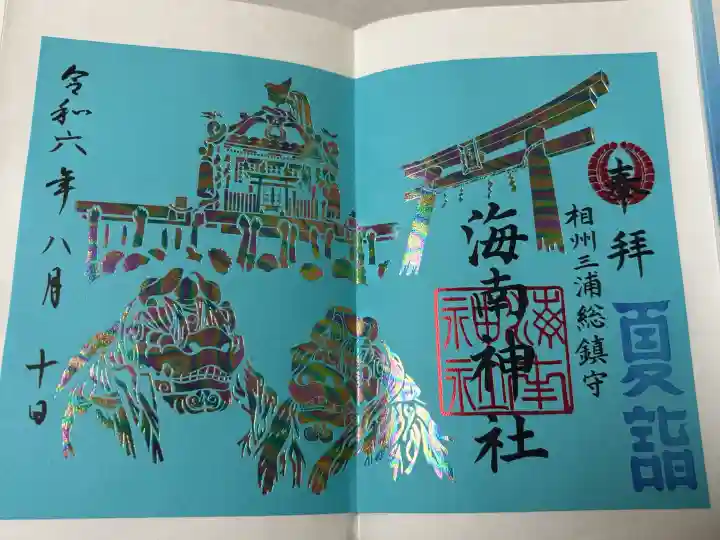 夏詣
奉拝
相州三浦総鎮守
海南神社
海南神社
令和六年八月十日